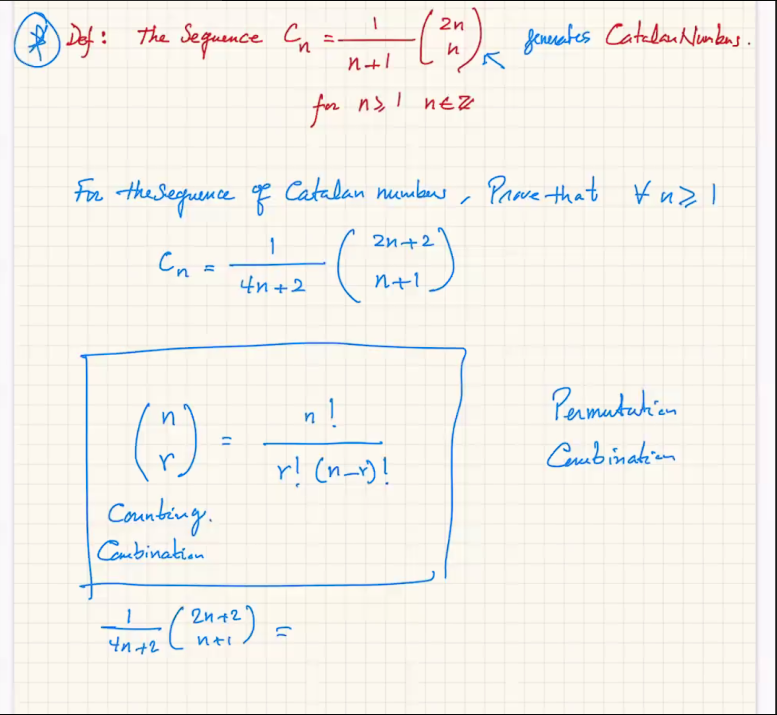 * Def: the Sequence Cₙ = 1/(n+1) (2n n) generates Catalan Numbers.
for n ≥ 1 n ∈ ℤ
For the Sequence of Catalan numbers, Prove that ∀ n ≥ 1
Cₙ = 1/(4n+2) (2n+2 n+1)
(n r) = n!/(r! (n-r)!)
Permutation
Combination
Counting.
Combination
1/(4n+2) (2n+2 n+1) =